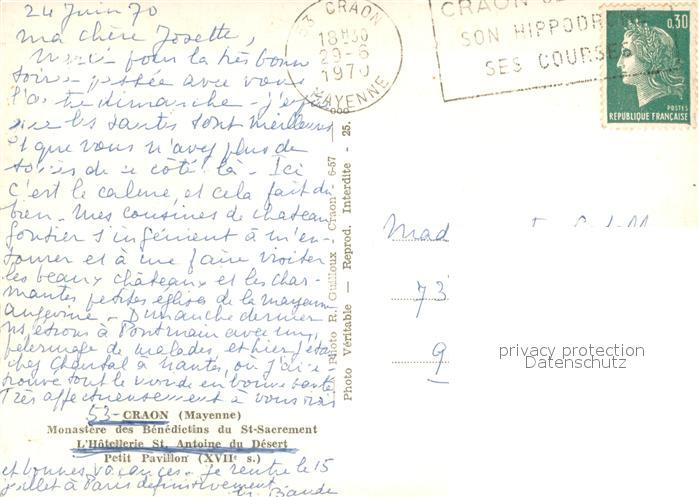 24 Juin 70
ma chère Josette,
Merci pour la très bonne
soirée passée avec vous
l'autre dimanche - j'espère
que les santés sont meilleures
et que vous n'avez plus de
soucis de ce côté là - Ici
c'est le calme, et cela fait du
bien - Mes cousines de chateau
gontier s'ingénient à m'en-
tourer et à me faire visiter
les beaux châteaux et les char-
mantes petites églises de la mayenne
angevine - Dimanche dernier
ns étions à Pontmain avec un
pèlerinage de malades et hier j'étais
chez Chantal à Nantes, où j'ai re-
trouvé tout le monde en bonne santé
Très affectueusement à vous
53 - CRAON (Mayenne)
Monastère des Bénédictins du St-Sacrement
L'Hôtellerie St. Antoine du Désert
Petit Pavillon (XVIIe s.)
et bonnes vacances - je rentre le 15
juillet à Paris définitivement
Photo R. Guilloux - Craon - 6-57
Photo Véritable — Reprod. Interdite - 25.
53 CRAON
18H30
29-6
1970
MAYENNE
CRAON
SON HIPPODROME
SES COURSES
0,30
POSTES
REPUBLIQUE FRANÇAISE
Mad
73
9
privacy protection
Datenschutz